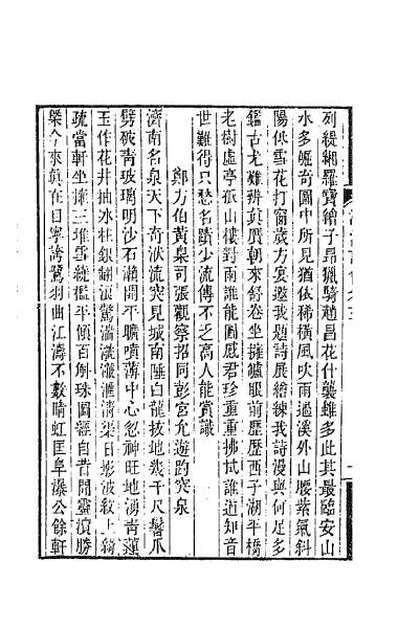 列緹緗羅寶繪子昂獵騎趙昌花什襲雖多此其最臨安山
水多崛奇圖中所見猶依稀橫風吹雨過溪外山腰紫氣斜
陽低雪花打窗歲方宴邀我題詩展繪練我詩漫與何足多
鑑古尤難辨眞贋朝來舒卷坐擁爐眼前歷歷西子湖平橋
老樹虛亭孤山樓對雨誰能圖戲君珍重重拂拭誰道知音
世難得只愁名蹟少流傳不乏高人能賞識
鄭方伯黃臬司張觀察招同彭宮允遊趵突泉
濟南名泉天下奇洑流突見城南陲白龍拔地裁千尺鬐爪
劈破靑玻璃明沙石瀨開平曠噴薄中心忽神旺地湧靑蓮
玉作花井抽水柱銀翻浪驚湍潨灑淮淸渠日影波紋上綺
疏當軒坐擁三堆雪繞檻平傾百斛珠圖經自昔聞靈瀆勝
槩今來眞在目寧誇鷺羽曲江濤不數晴虹匡阜瀑公餘軒